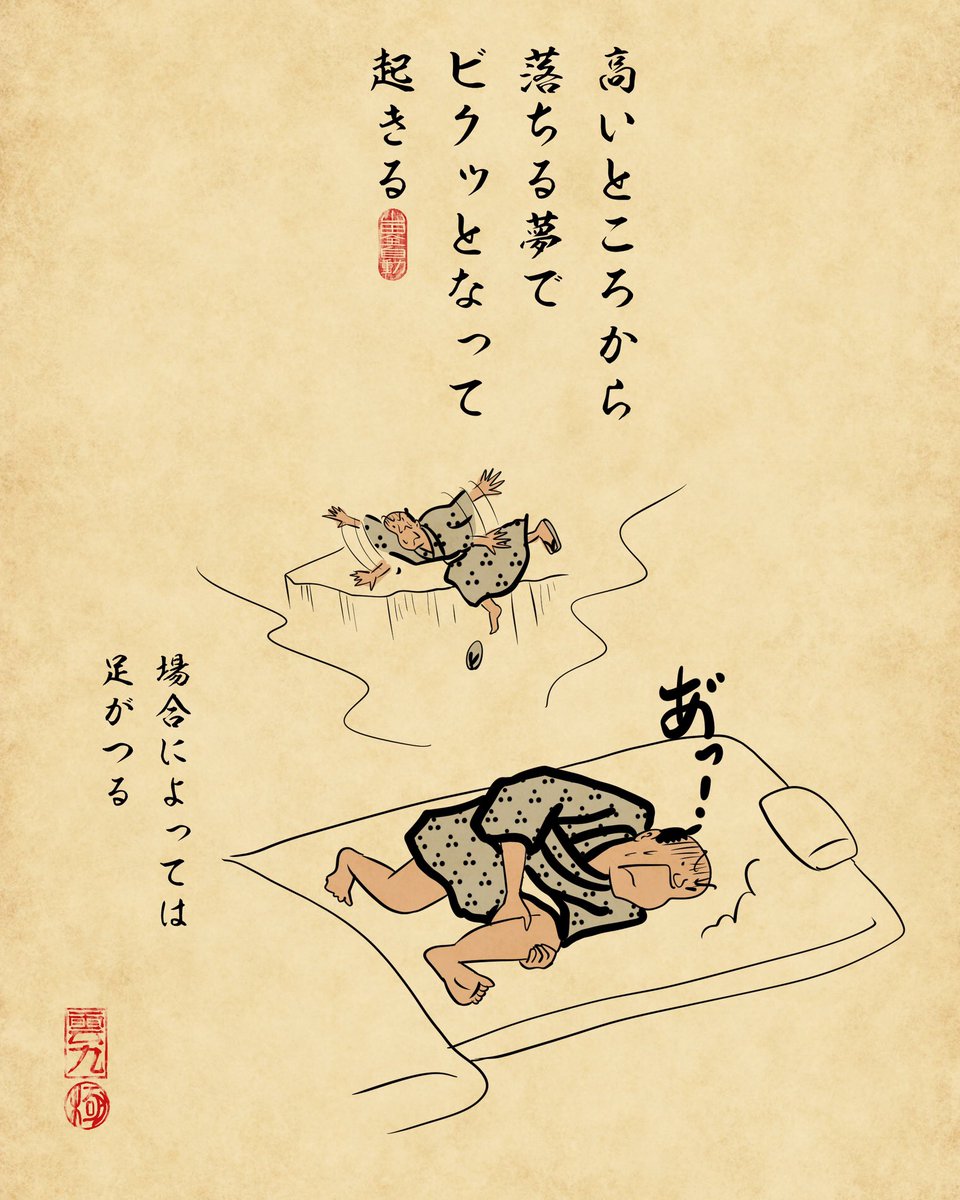 高いところから
落ちる夢で
ビクッとなって
起きる
あ゙っ！
場合によっては
足がつる